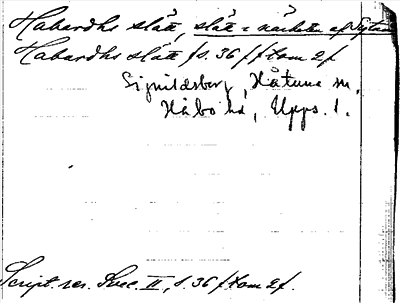 Habardhs slätt, slätt i närheten af Sigtuna
Habardhs slätt s. 36 f from 2f
Signildsberg, Håtuna sn,
Håbo hd, Upps. l.
Script. rer. Svec. II, s. 36 f from 2f.